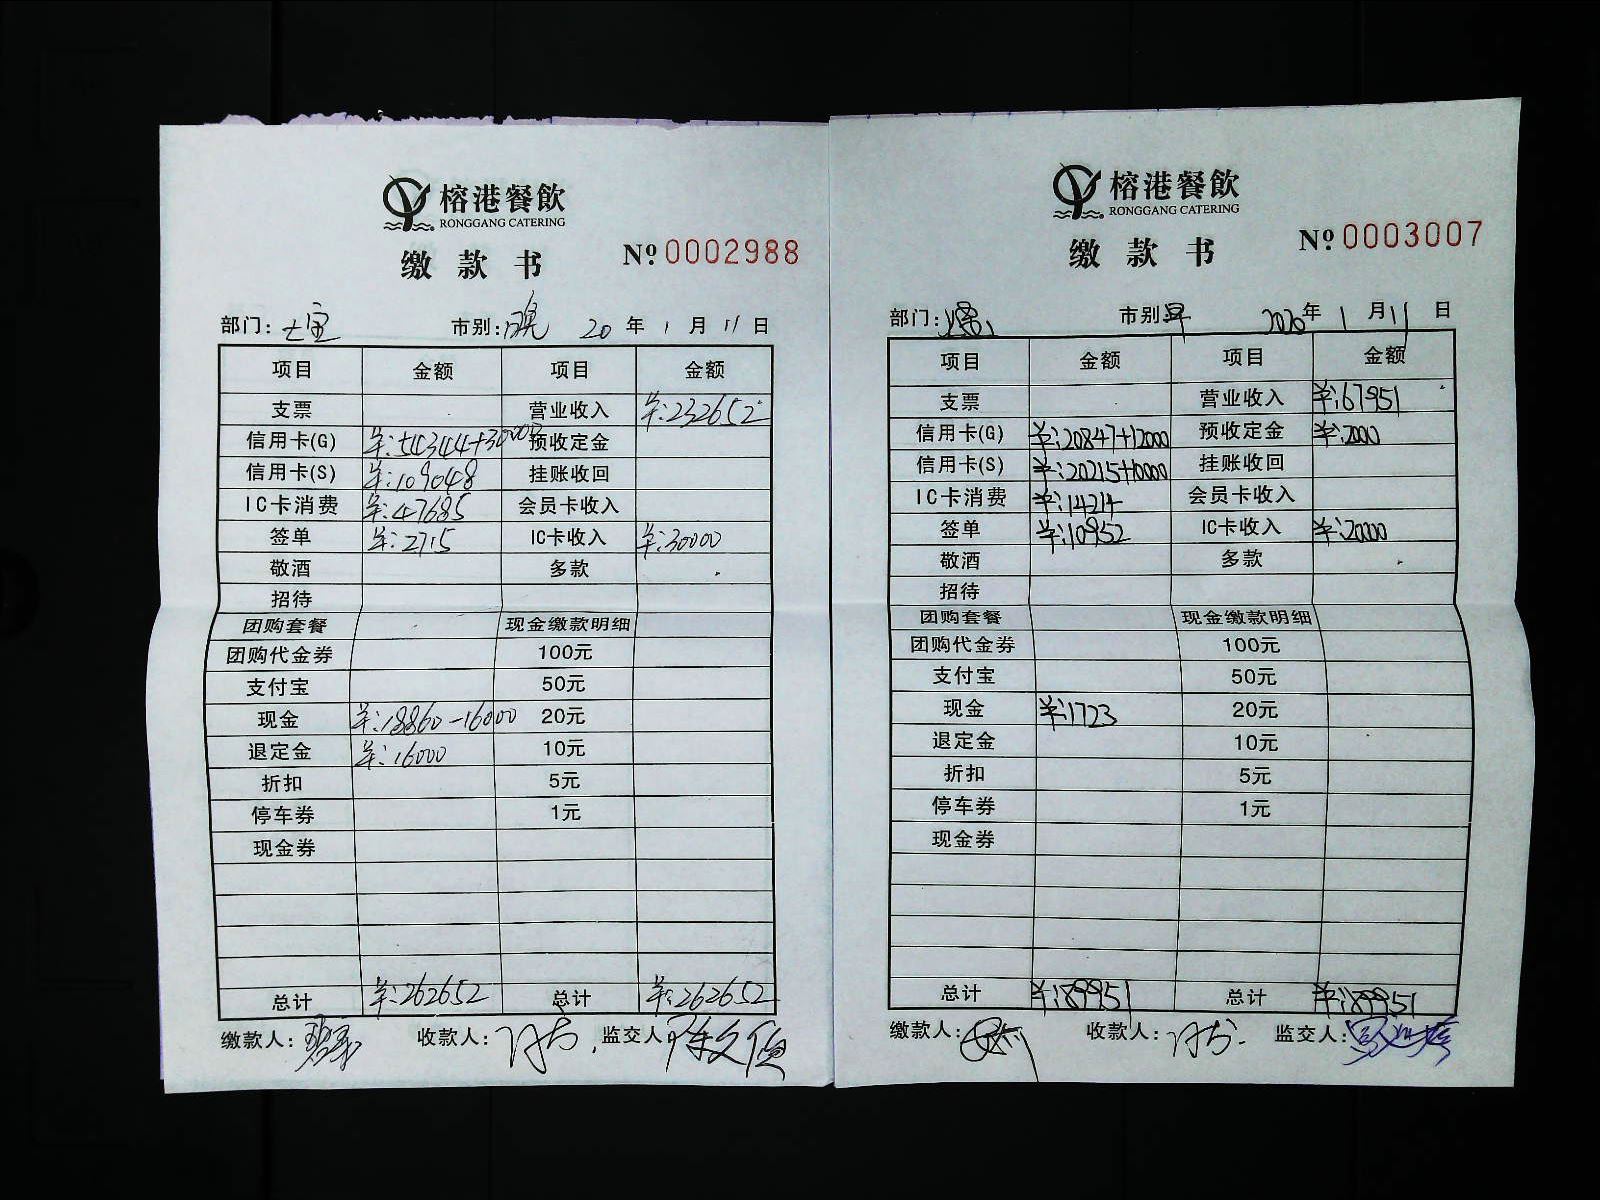 榕港餐飲
RONGGANG CATERING
缴款书
№ 0002988
部门: 七宝 市别: 晚 20 年 1 月 11 日
项目 金额 项目 金额
支票 营业收入 ¥:232652
信用卡(G) ¥:54344+30000 预收定金
信用卡(S) ¥:109048 挂账收回
IC卡消费 ¥:47685 会员卡收入
签单 ¥:2715 IC卡收入 ¥:30000
敬酒 多款
招待
团购套餐 现金缴款明细
团购代金券 100元
支付宝 50元
现金 ¥:18860-16000 20元
退定金 ¥:16000 10元
折扣 5元
停车券 1元
现金券
总计 ¥:262652 总计 ¥:262652
缴款人: 收款人: 监交人:
榕港餐飲
RONGGANG CATERING
缴款书
№ 0003007
部门: 市别: 早 2020 年 1 月 11 日
项目 金额 项目 金额
支票 营业收入 ¥:67951
信用卡(G) ¥:20847+12000 预收定金 ¥:2000
信用卡(S) ¥:20215+10000 挂账收回
IC卡消费 ¥:14214 会员卡收入
签单 ¥:10952 IC卡收入 ¥:20000
敬酒 多款
招待
团购套餐 现金缴款明细
团购代金券 100元
支付宝 50元
现金 ¥:1723 20元
退定金 10元
折扣 5元
停车券 1元
现金券
总计 ¥:89951 总计 ¥:89951
缴款人: 收款人: 监交人: